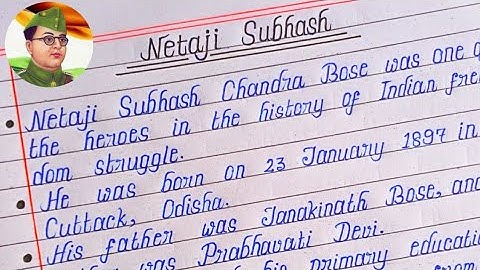 Netaji Subhash
Netaji Subhash Chandra Bose was one
the heroes in the history of Indian
dom struggle.
He was born on 23 January 1897 in
Cuttack, Odisha.
His father was Janakinath Bose, and
was Prabhavati Devi.
his primary